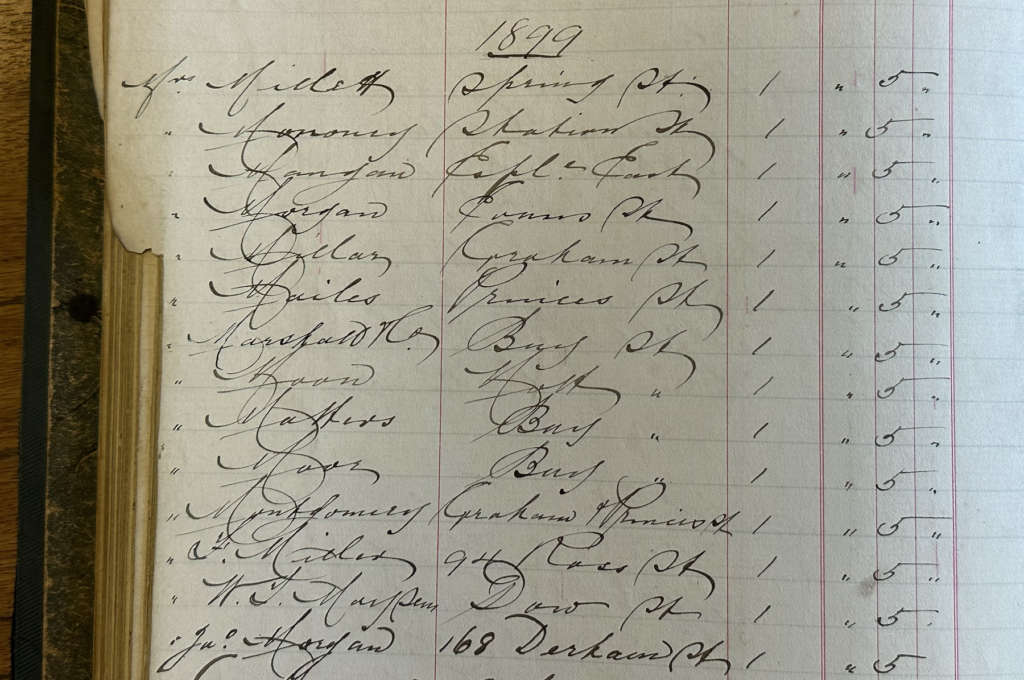 1899
Mrs Millett Spring St. 1 " 5 "
" Mononey Station St 1 " 5 "
" Mangan Espl. East 1 " 5 "
" Morgan Evans St 1 " 5 "
" Millar Graham St 1 " 5 "
" Mailes Princes St 1 " 5 "
" Marshall H Bay St 1 " 5 "
" Moon Nott " 1 " 5 "
" Matters Bay " 1 " 5 "
" Moor Bay " 1 " 5 "
" Montgomery Graham & Princes St 1 " 5 "
" F. Miller 94 Ross St. 1 " 5 "
" W. J. Dow St 1 " 5 "
" Jno. Morgan 168 Derham St 1 " 5